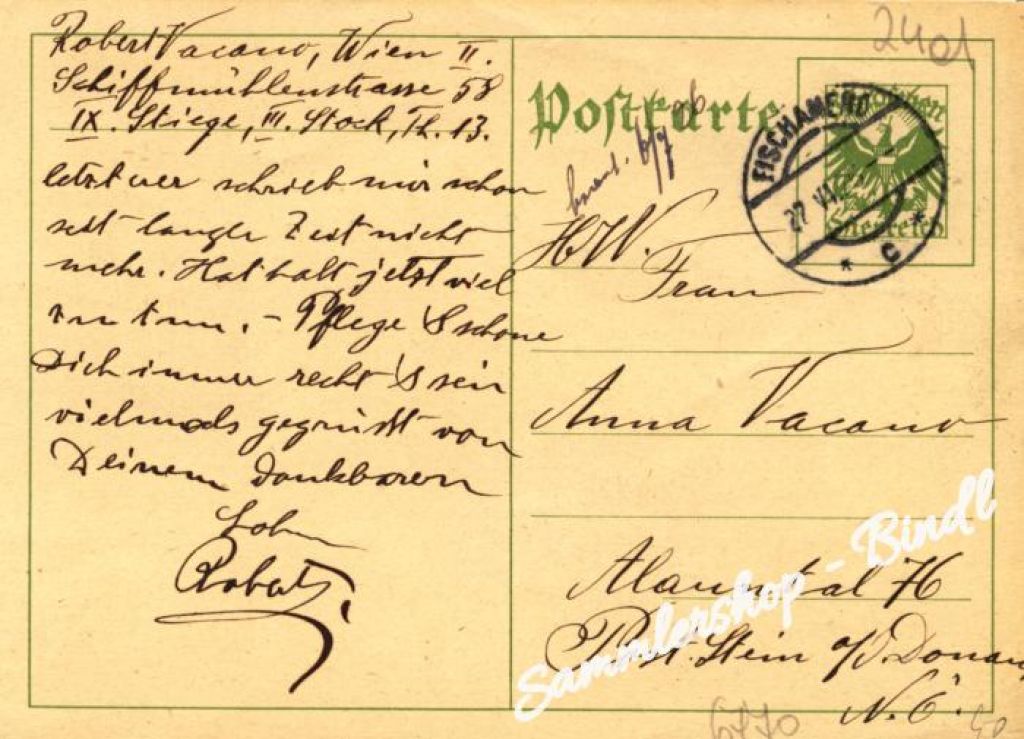 Robert Vacano, Wien II.
Schiffmühlenstrasse 58
IX. Stiege, III. Stock, Th. 13.
schrieb mir schon
seit langer Zeit nicht
mehr. Hat halt jetzt viel
zu tun. – Pflege & schone
Dich immer recht & sein
vielmals gegrüsst von
Deinem dankbaren
Sohn
Robert.
2401
Postkarte
FISCHAMEND
27 VI
* C *
Österreich
6/7
H.W.
Frau
Anna Vacano
Alauntal 76
Post. Stein a/d. Donau
N.Ö.
6770
Sammlershop - Bindl